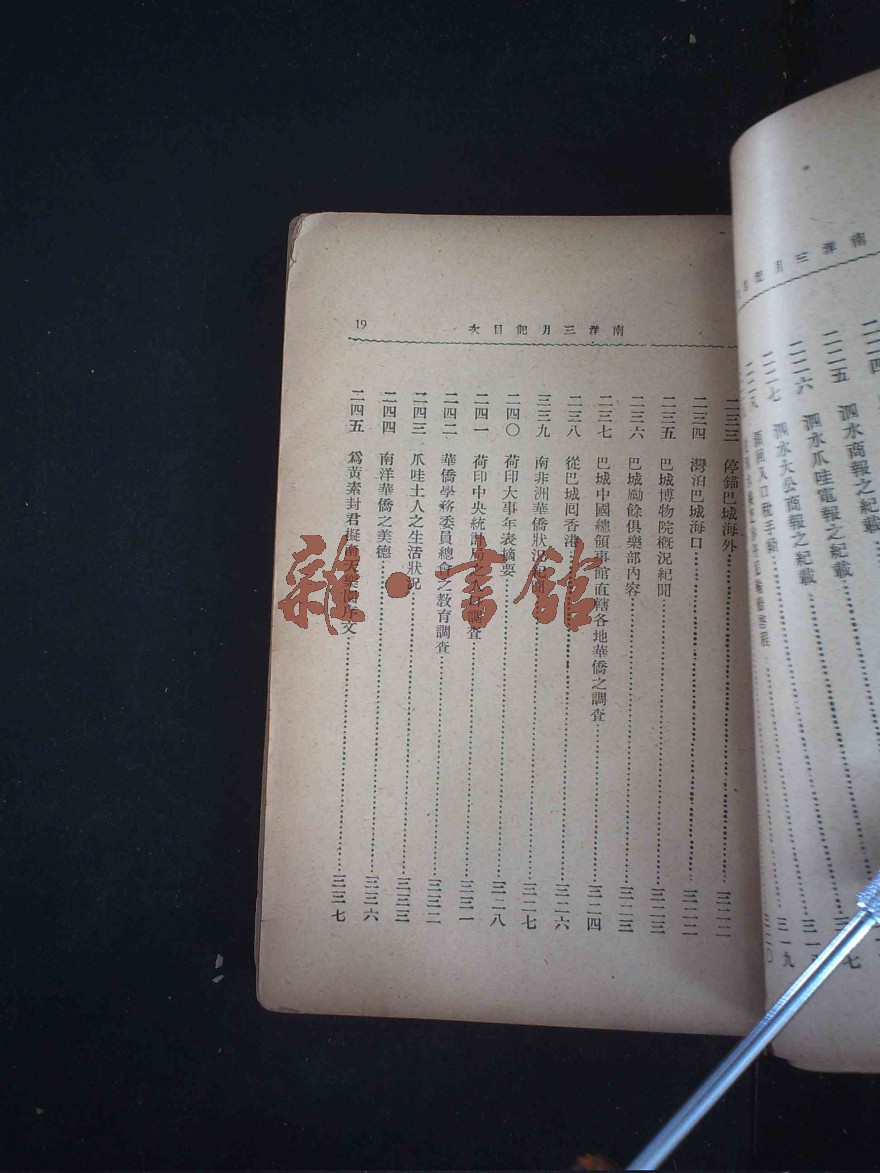 南洋三月記目
二二四
二二五 泗水商報之紀載
二二六 泗水爪哇電報之紀載
二二七 泗水大公商報之紀載 三一九
二二八 三二〇
南洋三月記目次 19
二三三 停錨巴城海外 三二二
二三四 灣泊巴城海口 三二二
二三五 巴城博物院概況紀聞 三二三
二三六 巴城勵餘俱樂部內容 三二三
二三七 巴城中國總領事館直轄各地華僑之調查 三二四
二三八 從巴城回香港 三二六
三三九 南非洲華僑狀況紀聞 三二七
二四〇 荷印大事年表摘要 三二八
二四一 荷印中央統計局之人口調查 三三一
二四二 華僑學務委員總會之教育調查 三三二
二四三 爪哇土人之生活狀況 三三三
二四四 南洋華僑之美德 三三六
二四五 爲黃素封君擬南天樂園序文 三三七
雜·書館